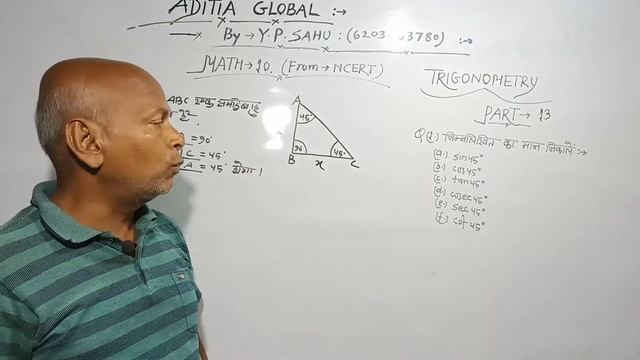 ADITIA GLOBAL :→
→ By → Y.P. SAHU : (6203 3780) :→
MATH → 10 (From → NCERT)
TRIGONOMETRY
PART → 13
ABC एक समद्विबाहु
= 90°
C = 45°
A = 45° होगा।
A
45°
90°
45°
B
x
C
Q (1.) निम्नलिखित का मान निकालें :→
(a.) sin 45°
(b.) cos 45°
(c.) tan 45°
(d.) cosec 45°
(e.) sec 45°
(f.) cot 45°